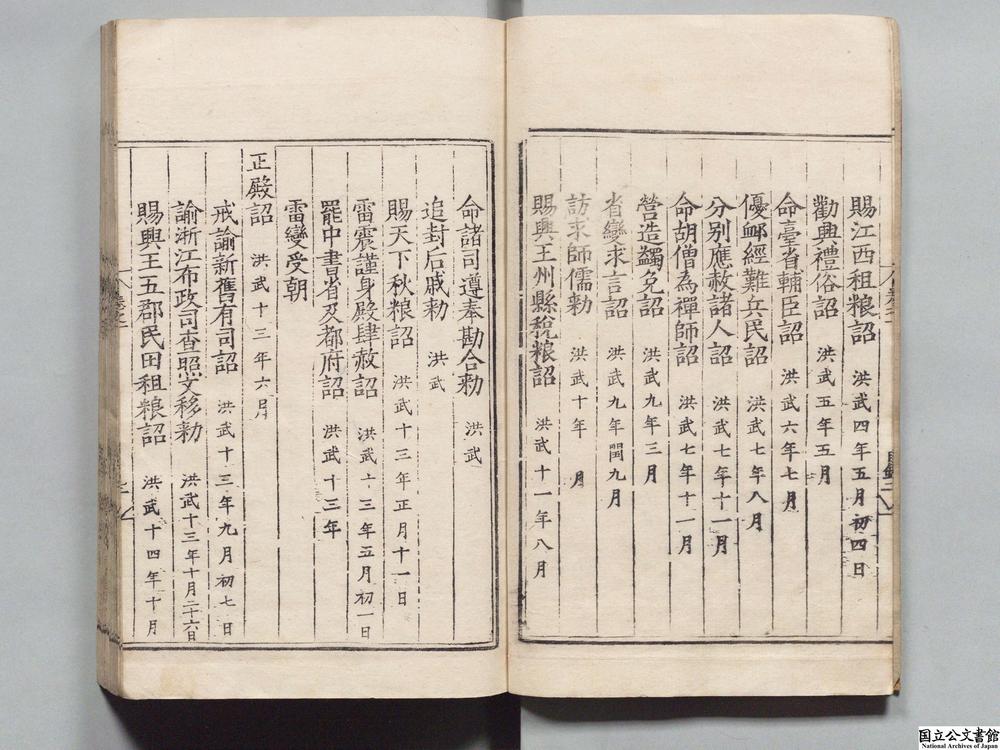 賜江西租粮詔 洪武四年五月初四日
勸興禮俗詔 洪武五年五月
命臺省輔臣詔 洪武六年七月
優䘏經難兵民詔 洪武七年八月
分别應赦諸人詔 洪武七年十一月
命胡僧為禪師詔 洪武七年十一月
營造蠲免詔 洪武九年三月
省變求言詔 洪武九年閏九月
訪求師儒勑 洪武十年 月
賜興王州縣稅粮詔 洪武十一年八月
命諸司遵奉勘合勑 洪武
追封后戚勑 洪武
賜天下秋粮詔 洪武十三年正月十一日
雷震謹身殿肆赦詔 洪武十三年五月初一日
罷中書省及都府詔 洪武十三年
雷變受朝
正殿詔 洪武十三年六月
戒諭新舊有司詔 洪武十三年九月初七日
諭浙江布政司查照文移勑 洪武十三年十月二十六日
賜興王五郡民田租粮詔 洪武十四年十月
国立公文書館
National Archives of Japan